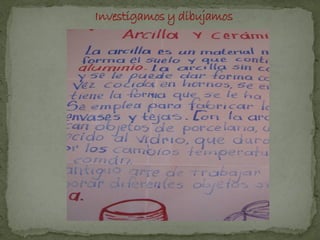 Investigamos y dibujamos
Arcilla y cerámi
La arcilla es un material n
forma el suelo y que conti
aluminio. La arcilla sin co
y se le puede dar forma co
vez cocida en hornos, se en
tiene la forma que se le ha
Se emplea para fabricar la
envases y tejas. Con la arc
can objetos de porcelana, o
cido al vidrio, que duro
or los cambios temperatu
común.
antiguo arte de trabajar
orar diferentes objetos
a.